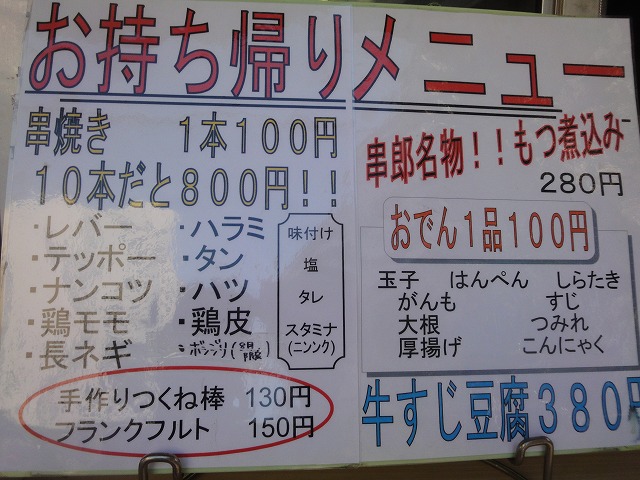 お持ち帰りメニュー
串焼き 1本100円
10本だと800円！！
・レバー ・ハラミ
・テッポー ・タン
・ナンコツ ・ハツ
・鶏モモ ・鶏皮
・長ネギ ・ボンジリ(
味付け
塩
タレ
スタミナ
(ニンンク)
手作りつくね棒 130円
フランクフルト 150円
串郎名物！！もつ煮込み
280円
おでん1品100円
玉子 はんぺん しらたき
がんも すじ
大根 つみれ
厚揚げ こんにゃく
牛すじ豆腐380円